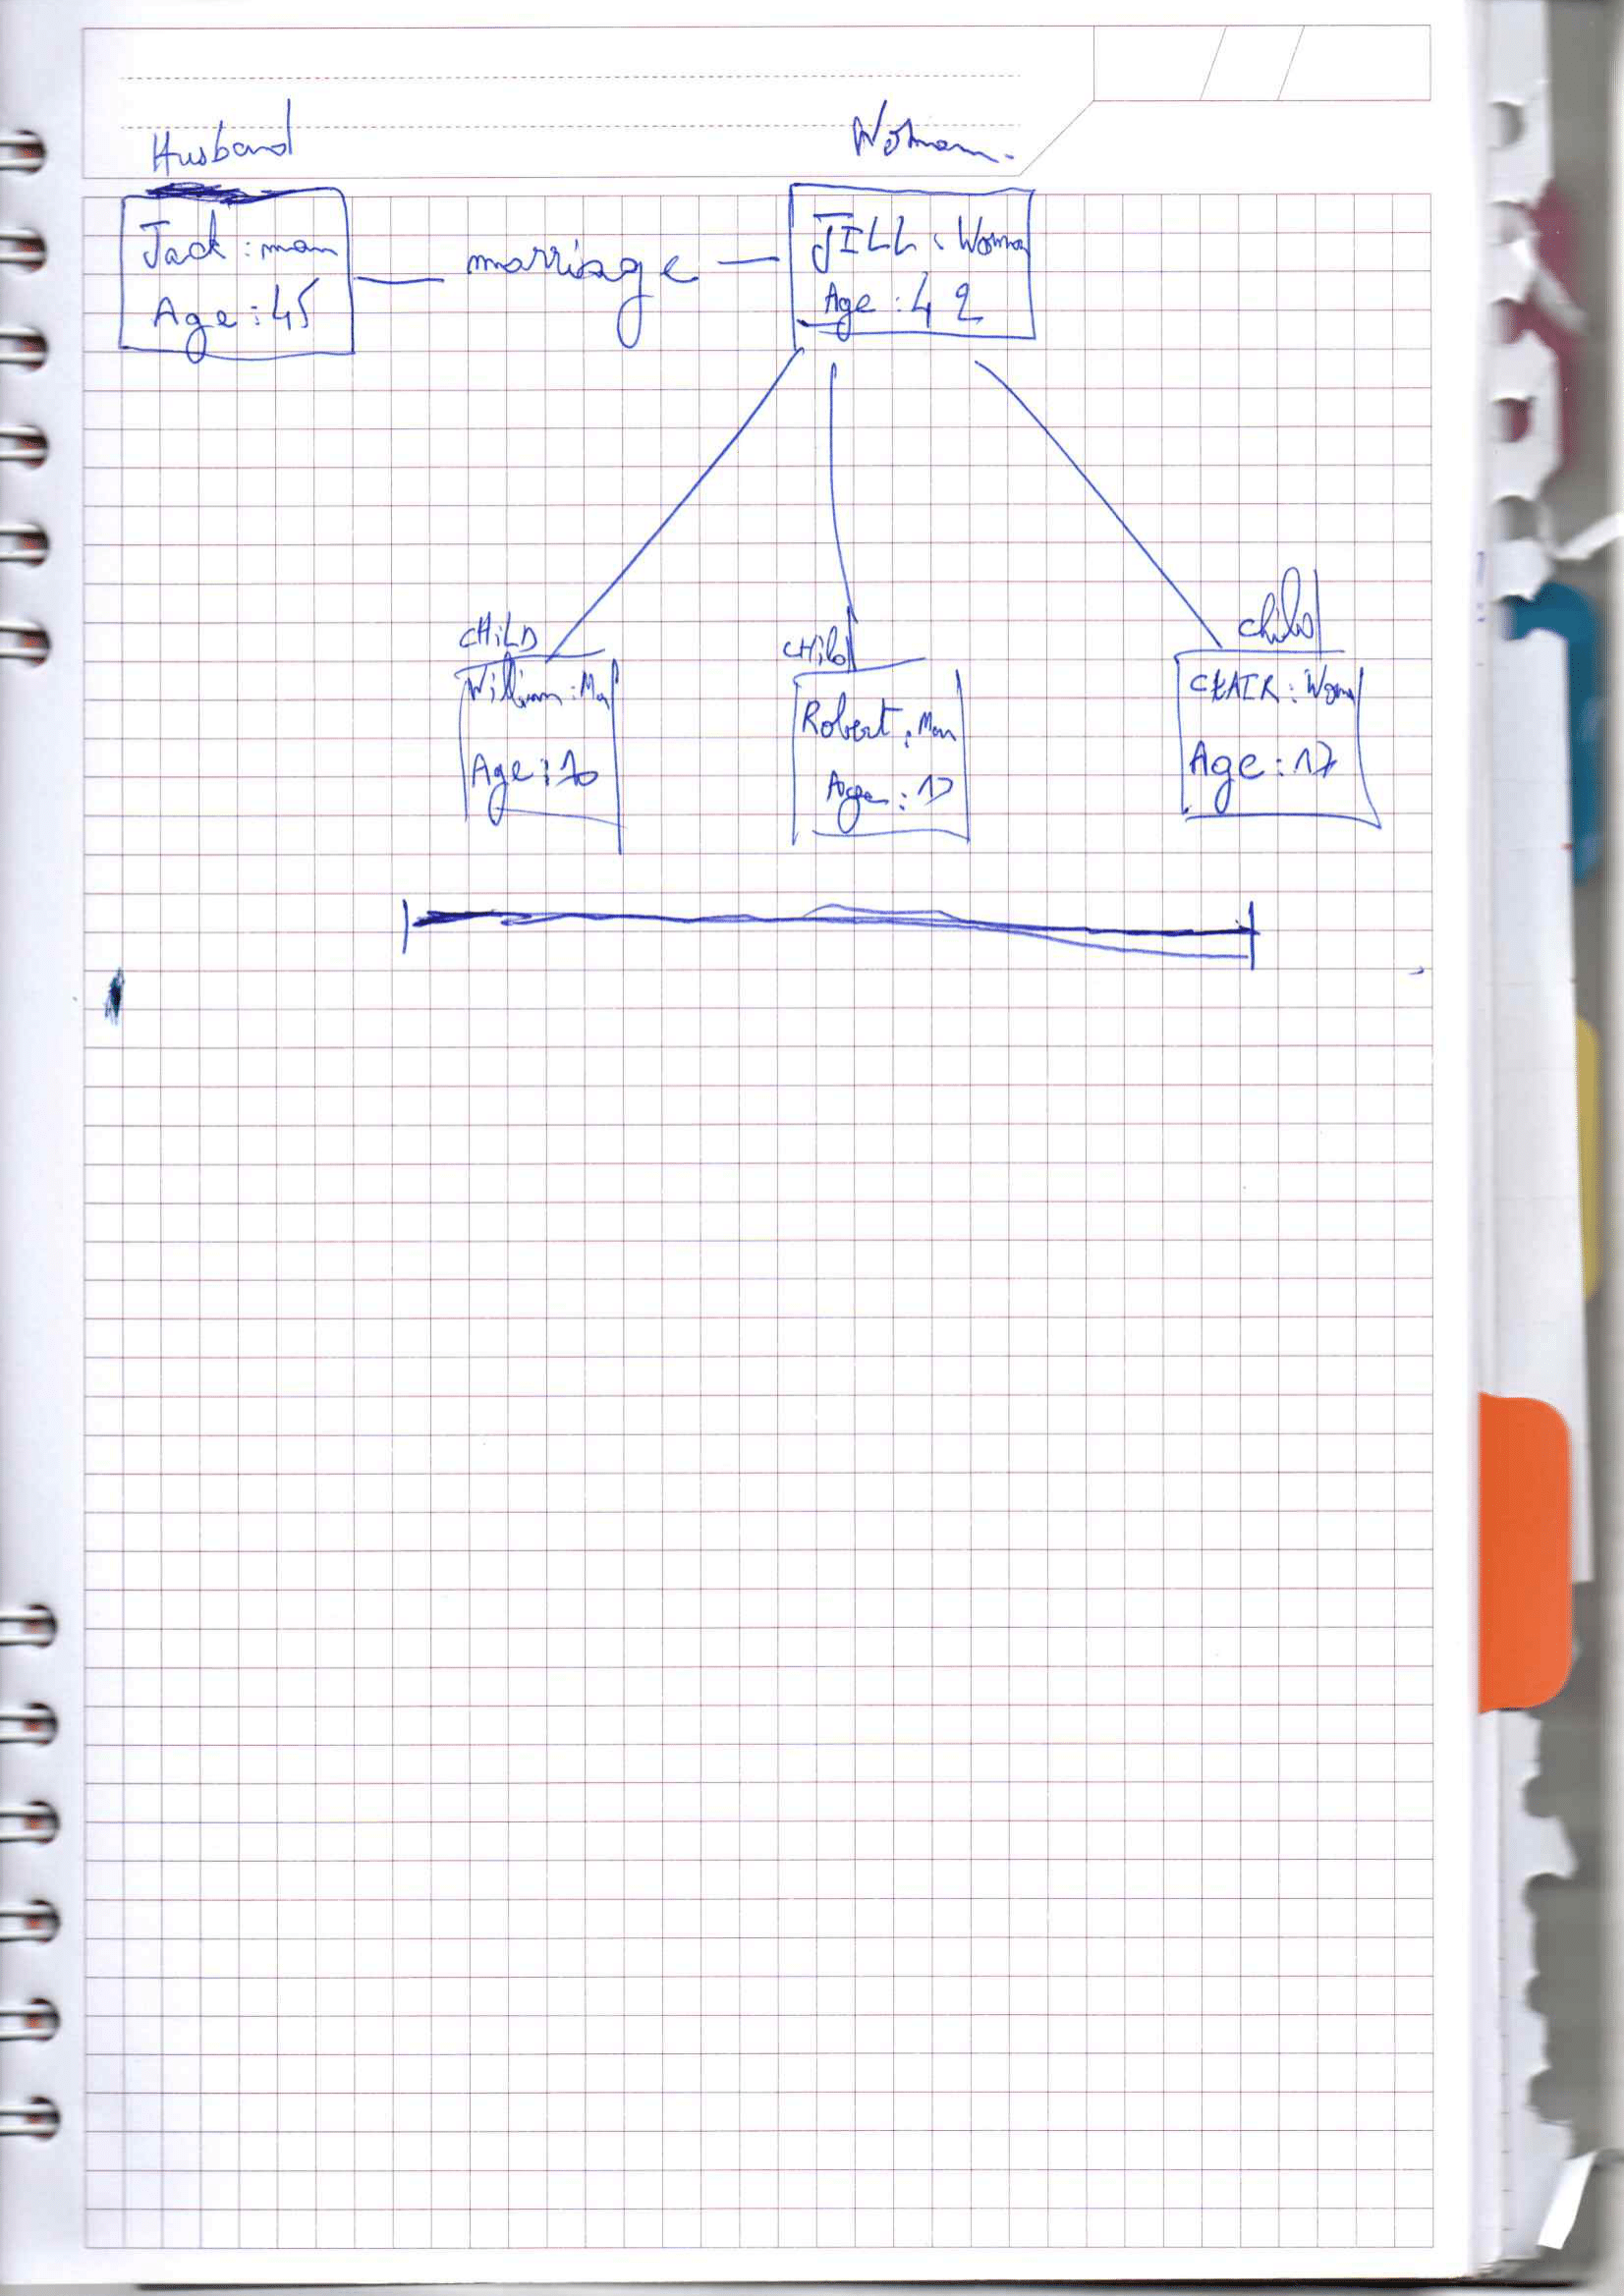 Husband
Woman.
Jack : man
Age : 45
marriage
JILL : Woman
Age : 42
CHiLD
William : Ma
Age : 10
CHild
Robert : Man
Age :
child
CLAIR : Woma
Age : 17